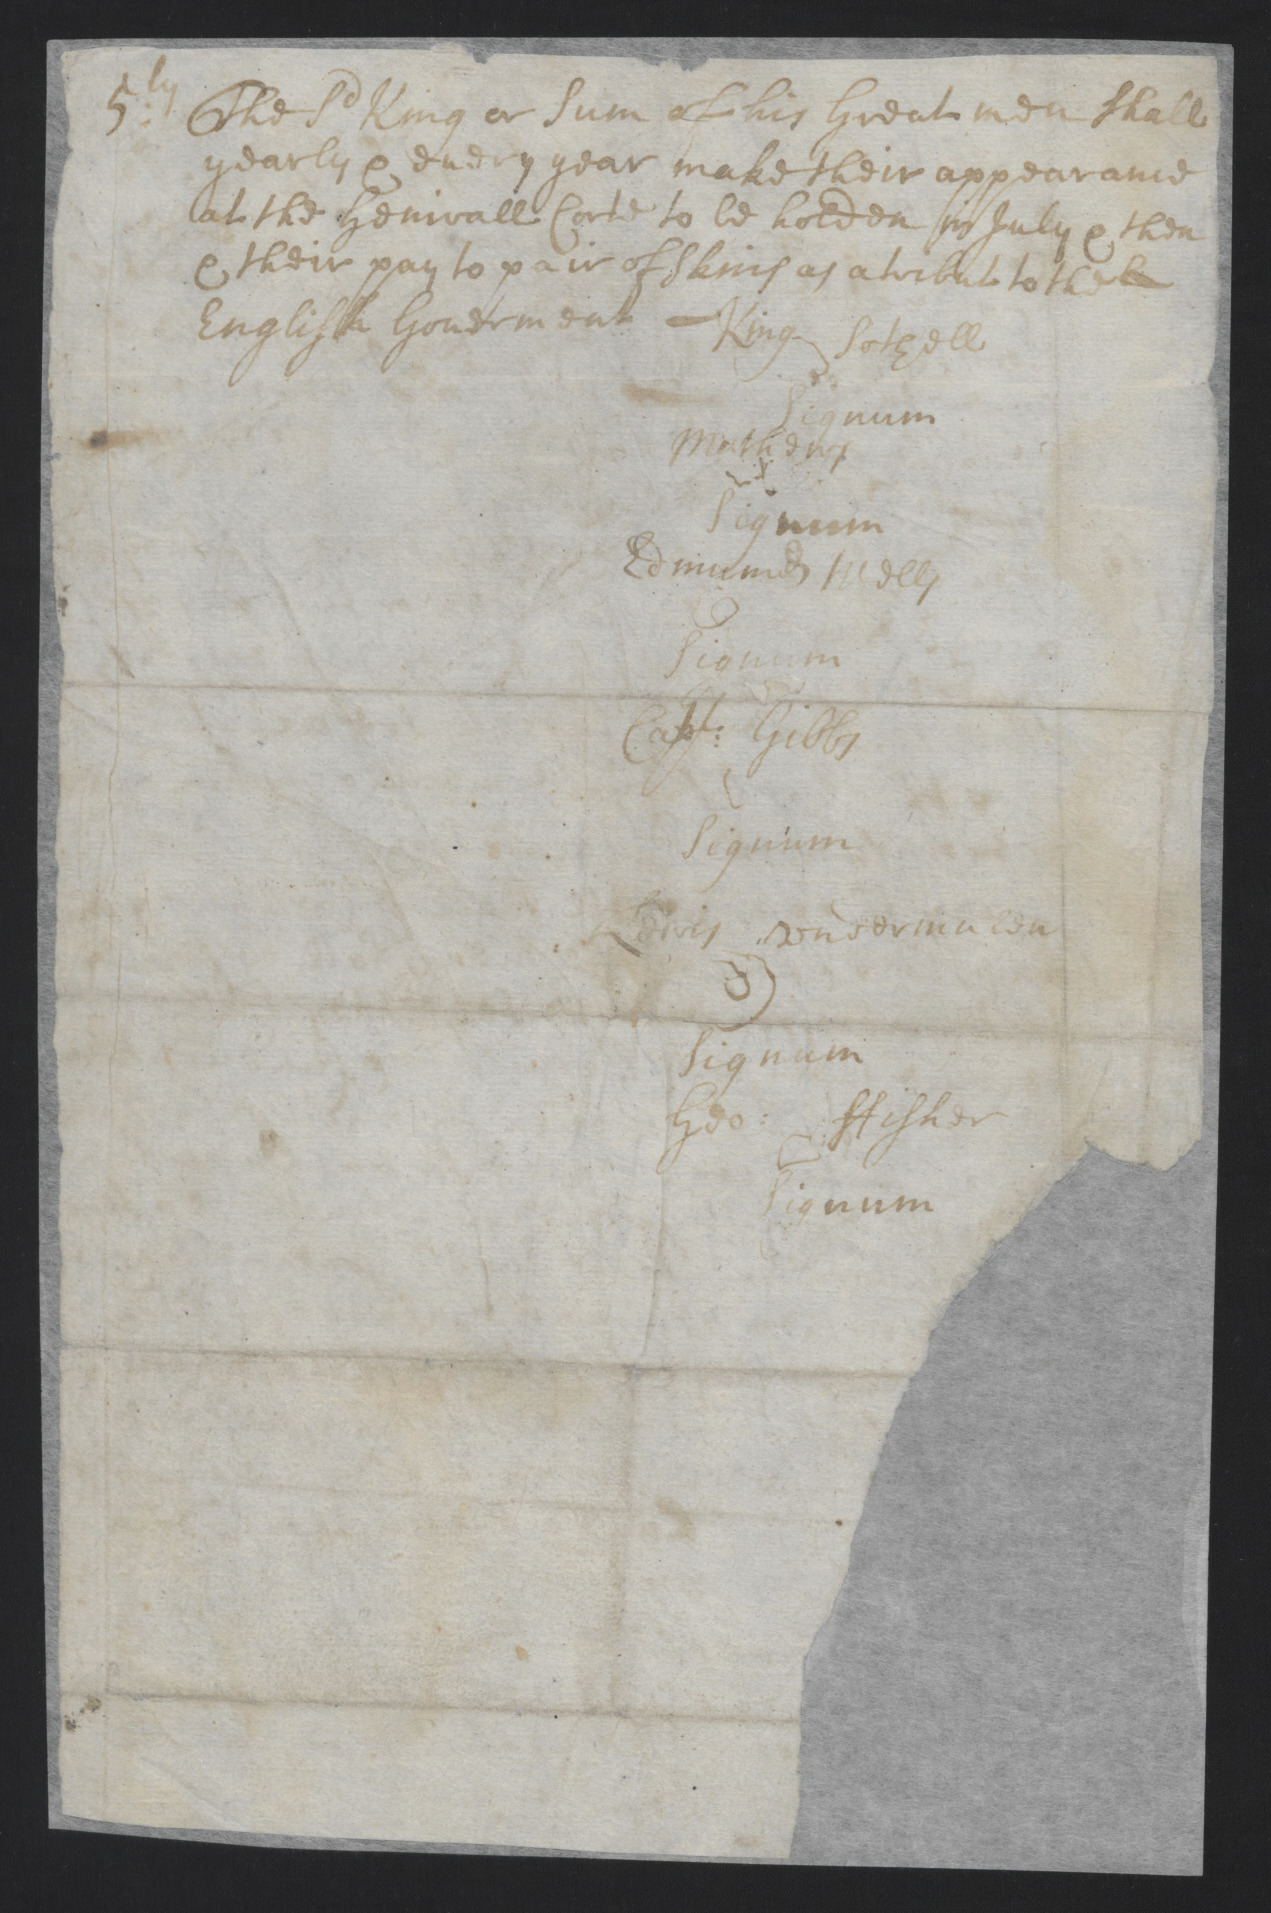 5:ly The Sd King or Sum of his Great men shall
yearly & euery year make their appearance
at the Generall Corte to be holden in July & then
& their pay to pair of Skins as a tribut to the
English Gouerment King Sothell
Signum
Mathews
Signum
Edmund Wells
Signum
Capt: Gibbs
Signum
Lewis vendermulen
Signum
Geo: ffisher
Signum